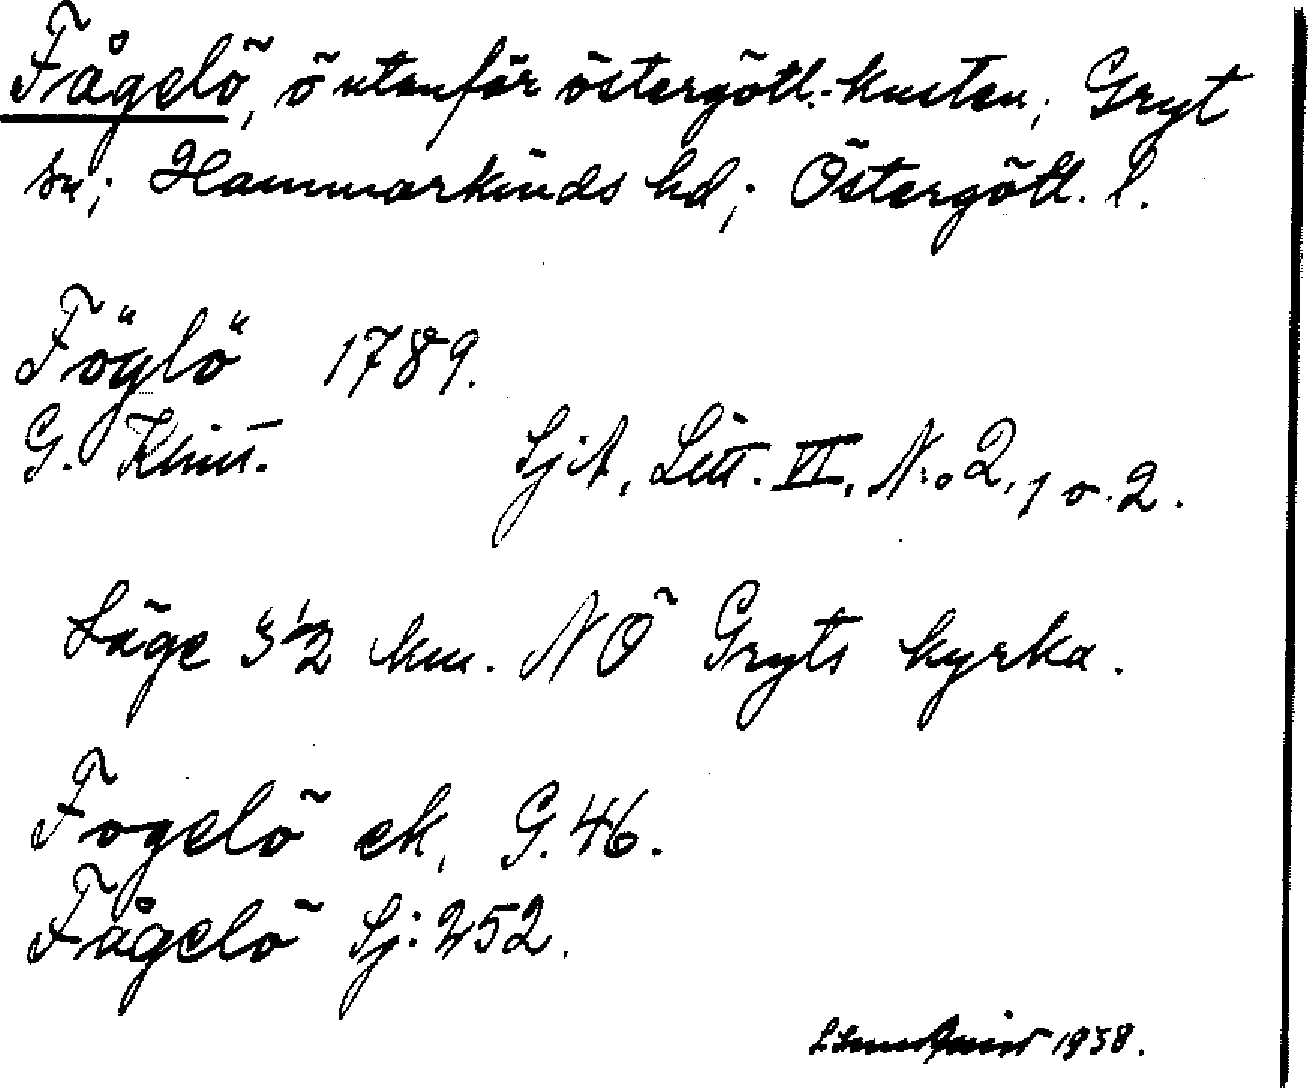 Fågelö, ö utanför östergötl.-kusten; Gryt
sn; Hammarkinds hd; Östergötl. l.
Föglö 1789.
G. Klint. SjA, Litt. VI, N:o 2, 1 o. 2.
Läge 3 1/2 km. NÖ Gryts kyrka.
Fogelö ek, G. 46.
Fågelö Sj: 252.
1938.